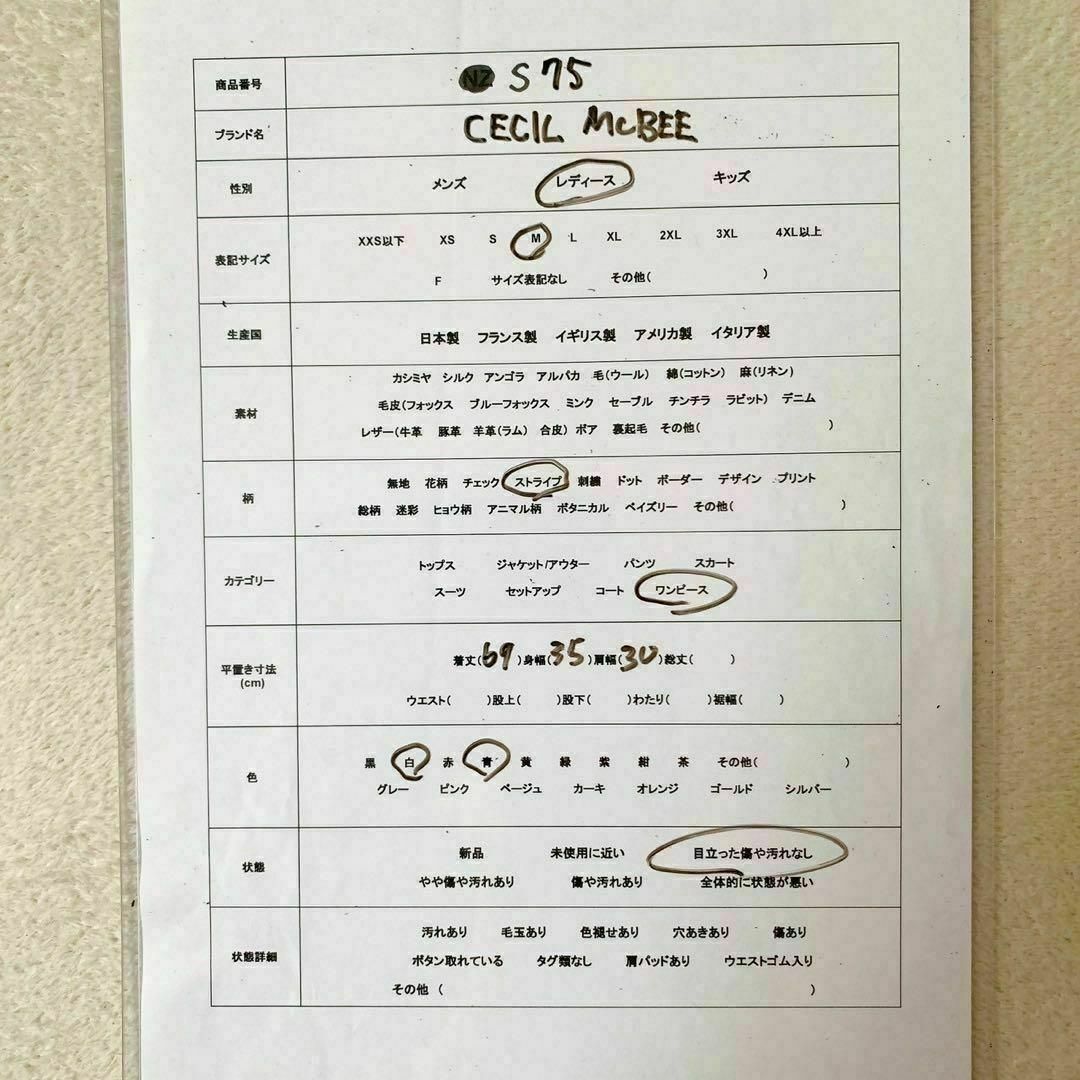 商品番号 NZ S75
ブランド名 CECIL McBEE
性別 メンズ レディース キッズ
表記サイズ XXS以下 XS S M L XL 2XL 3XL 4XL以上
F サイズ表記なし その他( )
生産国 日本製 フランス製 イギリス製 アメリカ製 イタリア製
カシミヤ シルク アンゴラ アルパカ 毛(ウール) 綿(コットン) 麻(リネン)
素材 毛皮(フォックス ブルーフォックス ミンク セーブル チンチラ ラビット) デニム
レザー(牛革 豚革 羊革(ラム) 合皮) ボア 裏起毛 その他( )
柄 無地 花柄 チェック ストライプ 刺繍 ドット ボーダー デザイン プリント
総柄 迷彩 ヒョウ柄 アニマル柄 ボタニカル ペイズリー その他( )
カテゴリー トップス ジャケット/アウター パンツ スカート
スーツ セットアップ コート ワンピース
平置き寸法 (cm) 着丈(69)身幅(35)肩幅(30)総丈( )
ウエスト( )股上( )股下( )わたり( )裾幅( )
色 黒 白 赤 青 黄 緑 紫 紺 茶 その他( )
グレー ピンク ベージュ カーキ オレンジ ゴールド シルバー
状態 新品 未使用に近い 目立った傷や汚れなし
やや傷や汚れあり 傷や汚れあり 全体的に状態が悪い
状態詳細 汚れあり 毛玉あり 色褪せあり 穴あきあり 傷あり
ボタン取れている タグ類なし 肩パッドあり ウエストゴム入り
その他 ( )